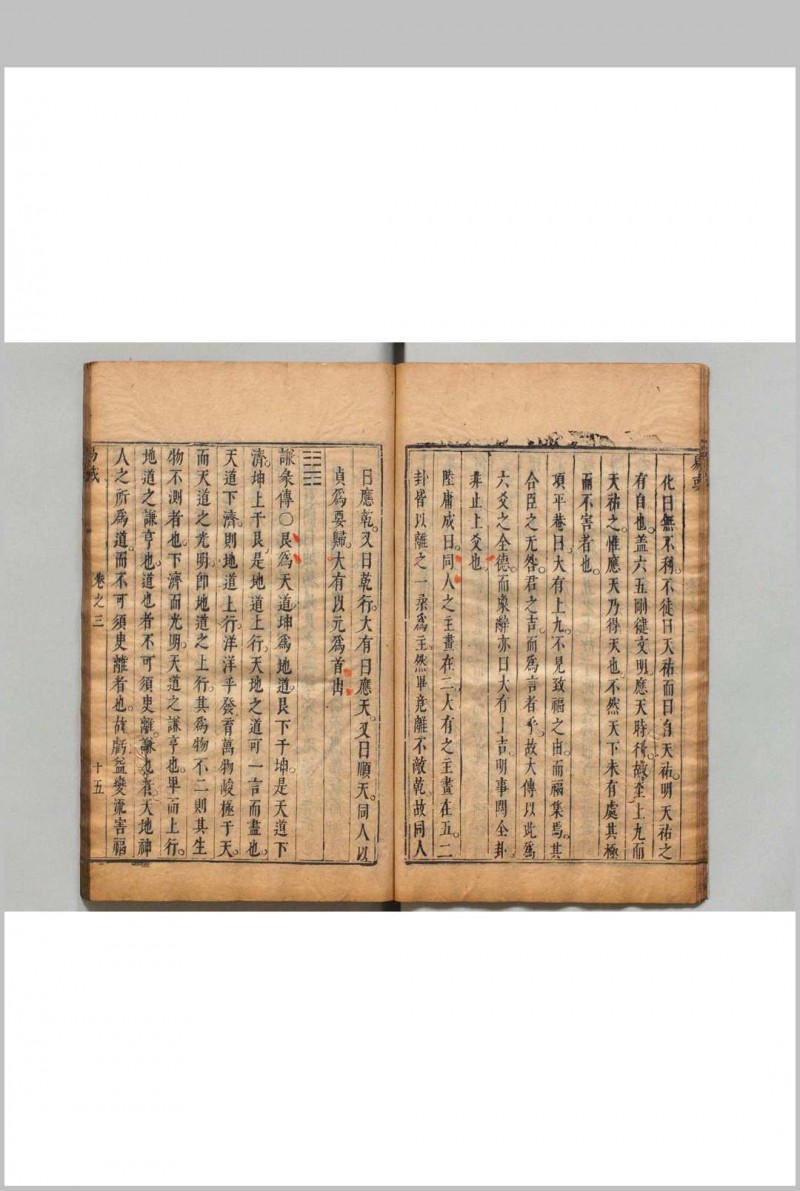 化曰無不利。不徒曰天祐而曰自天祐。明天祐之
有自也。蓋六五剛健文明。應天時行。故至上九而
天祐之。惟應天乃得天也。不然天下未有處其極
而不害者也。
項平菴曰。大有上九。不見致福之由。而福集焉。其
合臣之无咎。君之吉。而爲言者乎。故大傳以此爲
六爻之全德。而彖辭亦曰大有上吉。明事關全卦
非止上爻也。
陸庸成曰。同人之主畫在二。大有之主畫在五。二
卦皆以離之一柔爲主。然畢竟離不敵乾。故同人
曰應乾。又曰乾行。大有曰應天。又曰順天。同人以
貞爲要歸。大有以元爲首出
䷎
謙彖傳〇艮爲天道坤爲地道。艮下于坤。是天道下
濟。坤上于艮。是地道上行。天地之道可一言而盡也。
天道下濟。則地道上行。洋洋乎發育萬物峻極于天。
而天道之光明。卽地道之上行。其爲物不二則其生
物不測者也。下濟而光明。天道之謙亨也。卑而上行。
地道之謙亨也。道也者不可須臾離。謙也者。天地神
人之所爲道。而不可須臾離者也。故虧益變流害福
卷之三
十五